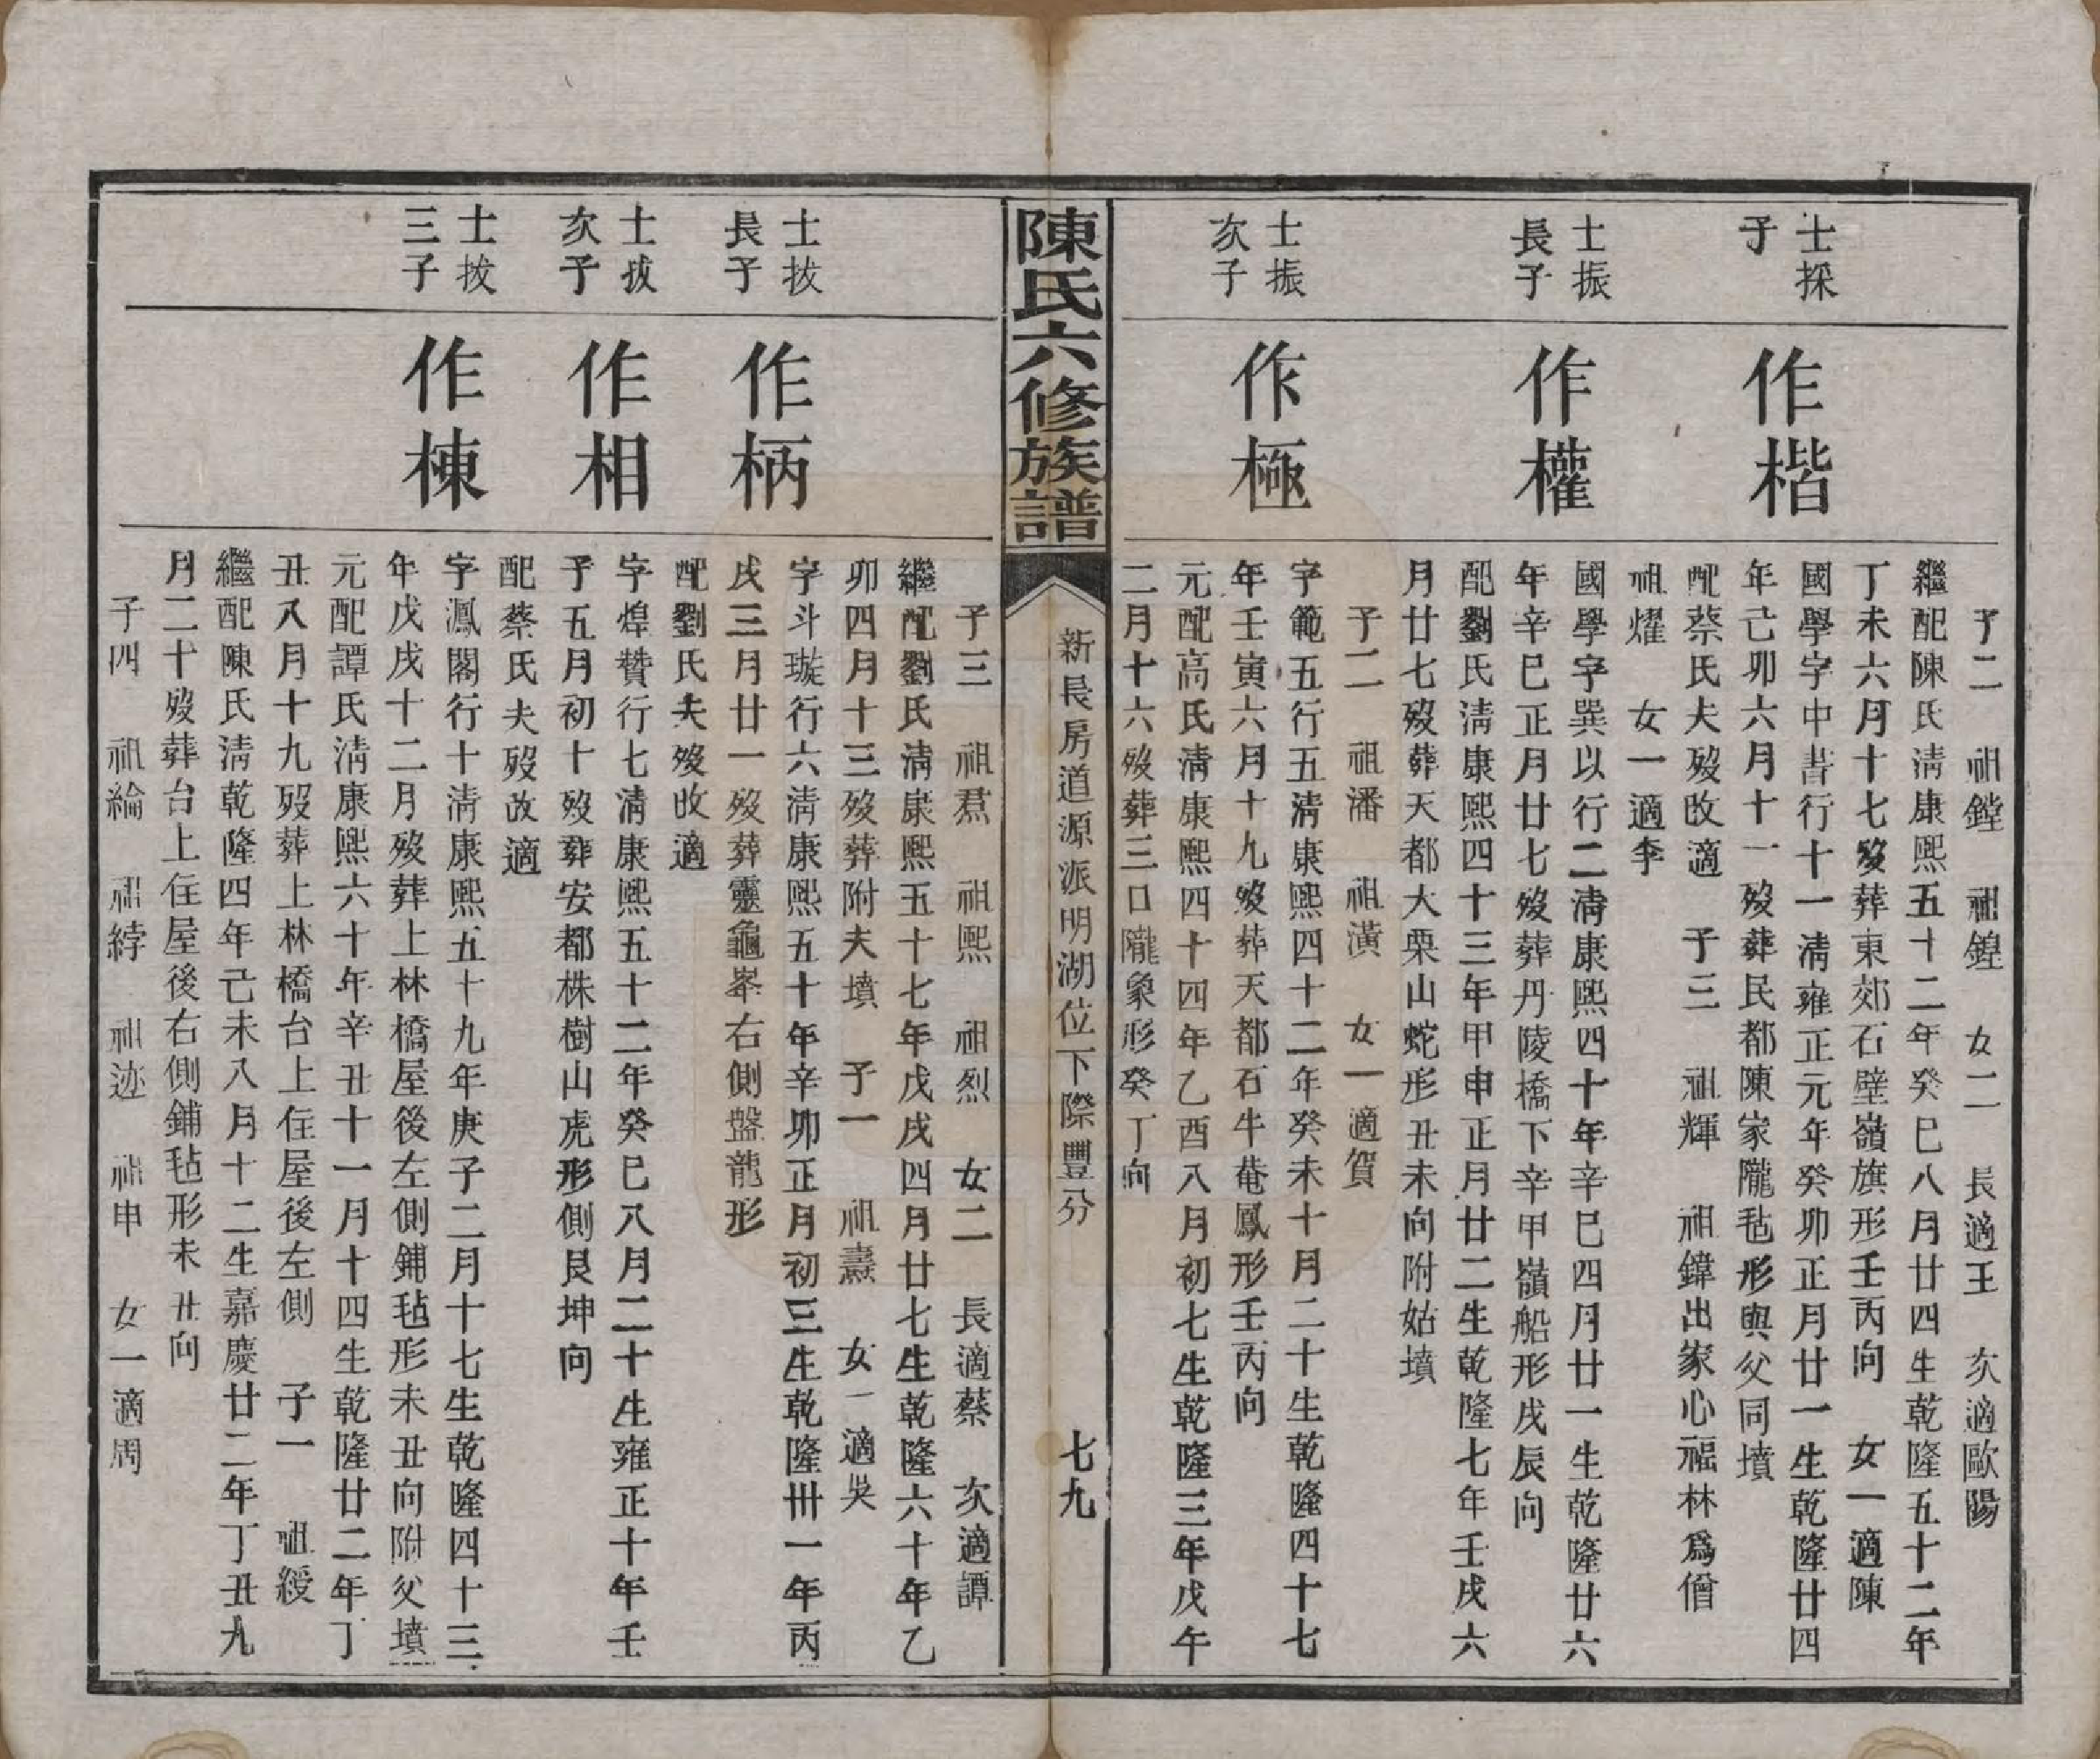 子二　祖鏜　祖鍠　女二　長適王　次適歐陽
繼配陳氏淸康熙五十二年癸巳八月廿四生乾隆五十二年
丁未六月十七歿葬東郊石壁嶺旗形壬丙向　女一適陳
士採
子
作楷
國學字中書行十一淸雍正元年癸卯正月廿一生乾隆廿四
年己卯六月十一歿葬民都陳家隴毡形與父同墳
配蔡氏夫歿改適　子三　祖輝　祖鍏出家心福林爲僧
祖燿　女一適李
士振
長子
作權
國學字巽以行二淸康熙四十年辛巳四月廿一生乾隆廿六
年辛巳正月廿七歿葬丹陵橋下辛甲嶺船形戌辰向
配劉氏淸康熙四十三年甲申正月廿二生乾隆七年壬戌六
月廿七歿葬天都大栗山蛇形丑未向附姑墳
子二　祖潘　祖潢　女一適賀
士振
次子
作極
字範五行五淸康熙四十二年癸未十月二十生乾隆四十七
年壬寅六月十九歿葬天都石牛菴鳳形壬丙向
元配高氏淸康熙四十四年乙酉八月初七生乾隆三年戊午
二月十六歿葬三口隴象形癸丁向
陳氏六修族譜
新長房道源派明湖位下際豐分
七九
子三　祖焄　祖熙　祖烈　女二　長適蔡　次適譚
繼配劉氏淸康熙五十七年戊戌四月廿七生乾隆六十年乙
卯四月十三歿葬附夫墳　子一　祖燾　女一適吳
士拔
長子
作柄
字斗璇行六淸康熙五十年辛卯正月初三生乾隆卅一年丙
戌三月廿一歿葬靈龜峯右側盤龍形
配劉氏夫歿改適
士拔
次子
作相
字煌贊行七淸康熙五十二年癸巳八月二十生雍正十年壬
子五月初十歿葬安都株樹山虎形側艮坤向
配蔡氏夫歿改適
士拔
三子
作棟
字鳳閣行十淸康熙五十九年庚子二月十七生乾隆四十三
年戊戌十二月歿葬上林橋屋後左側鋪毡形未丑向附父墳
元配譚氏淸康熙六十年辛丑十一月十四生乾隆廿二年丁
丑八月十九歿葬上林橋台上住屋後左側　子一　祖綬
繼配陳氏淸乾隆四年己未八月十二生嘉慶廿二年丁丑九
月二十歿葬台上住屋後右側鋪毡形未丑向
子四　祖綸　祖綍　祖迹　祖申　女一適周